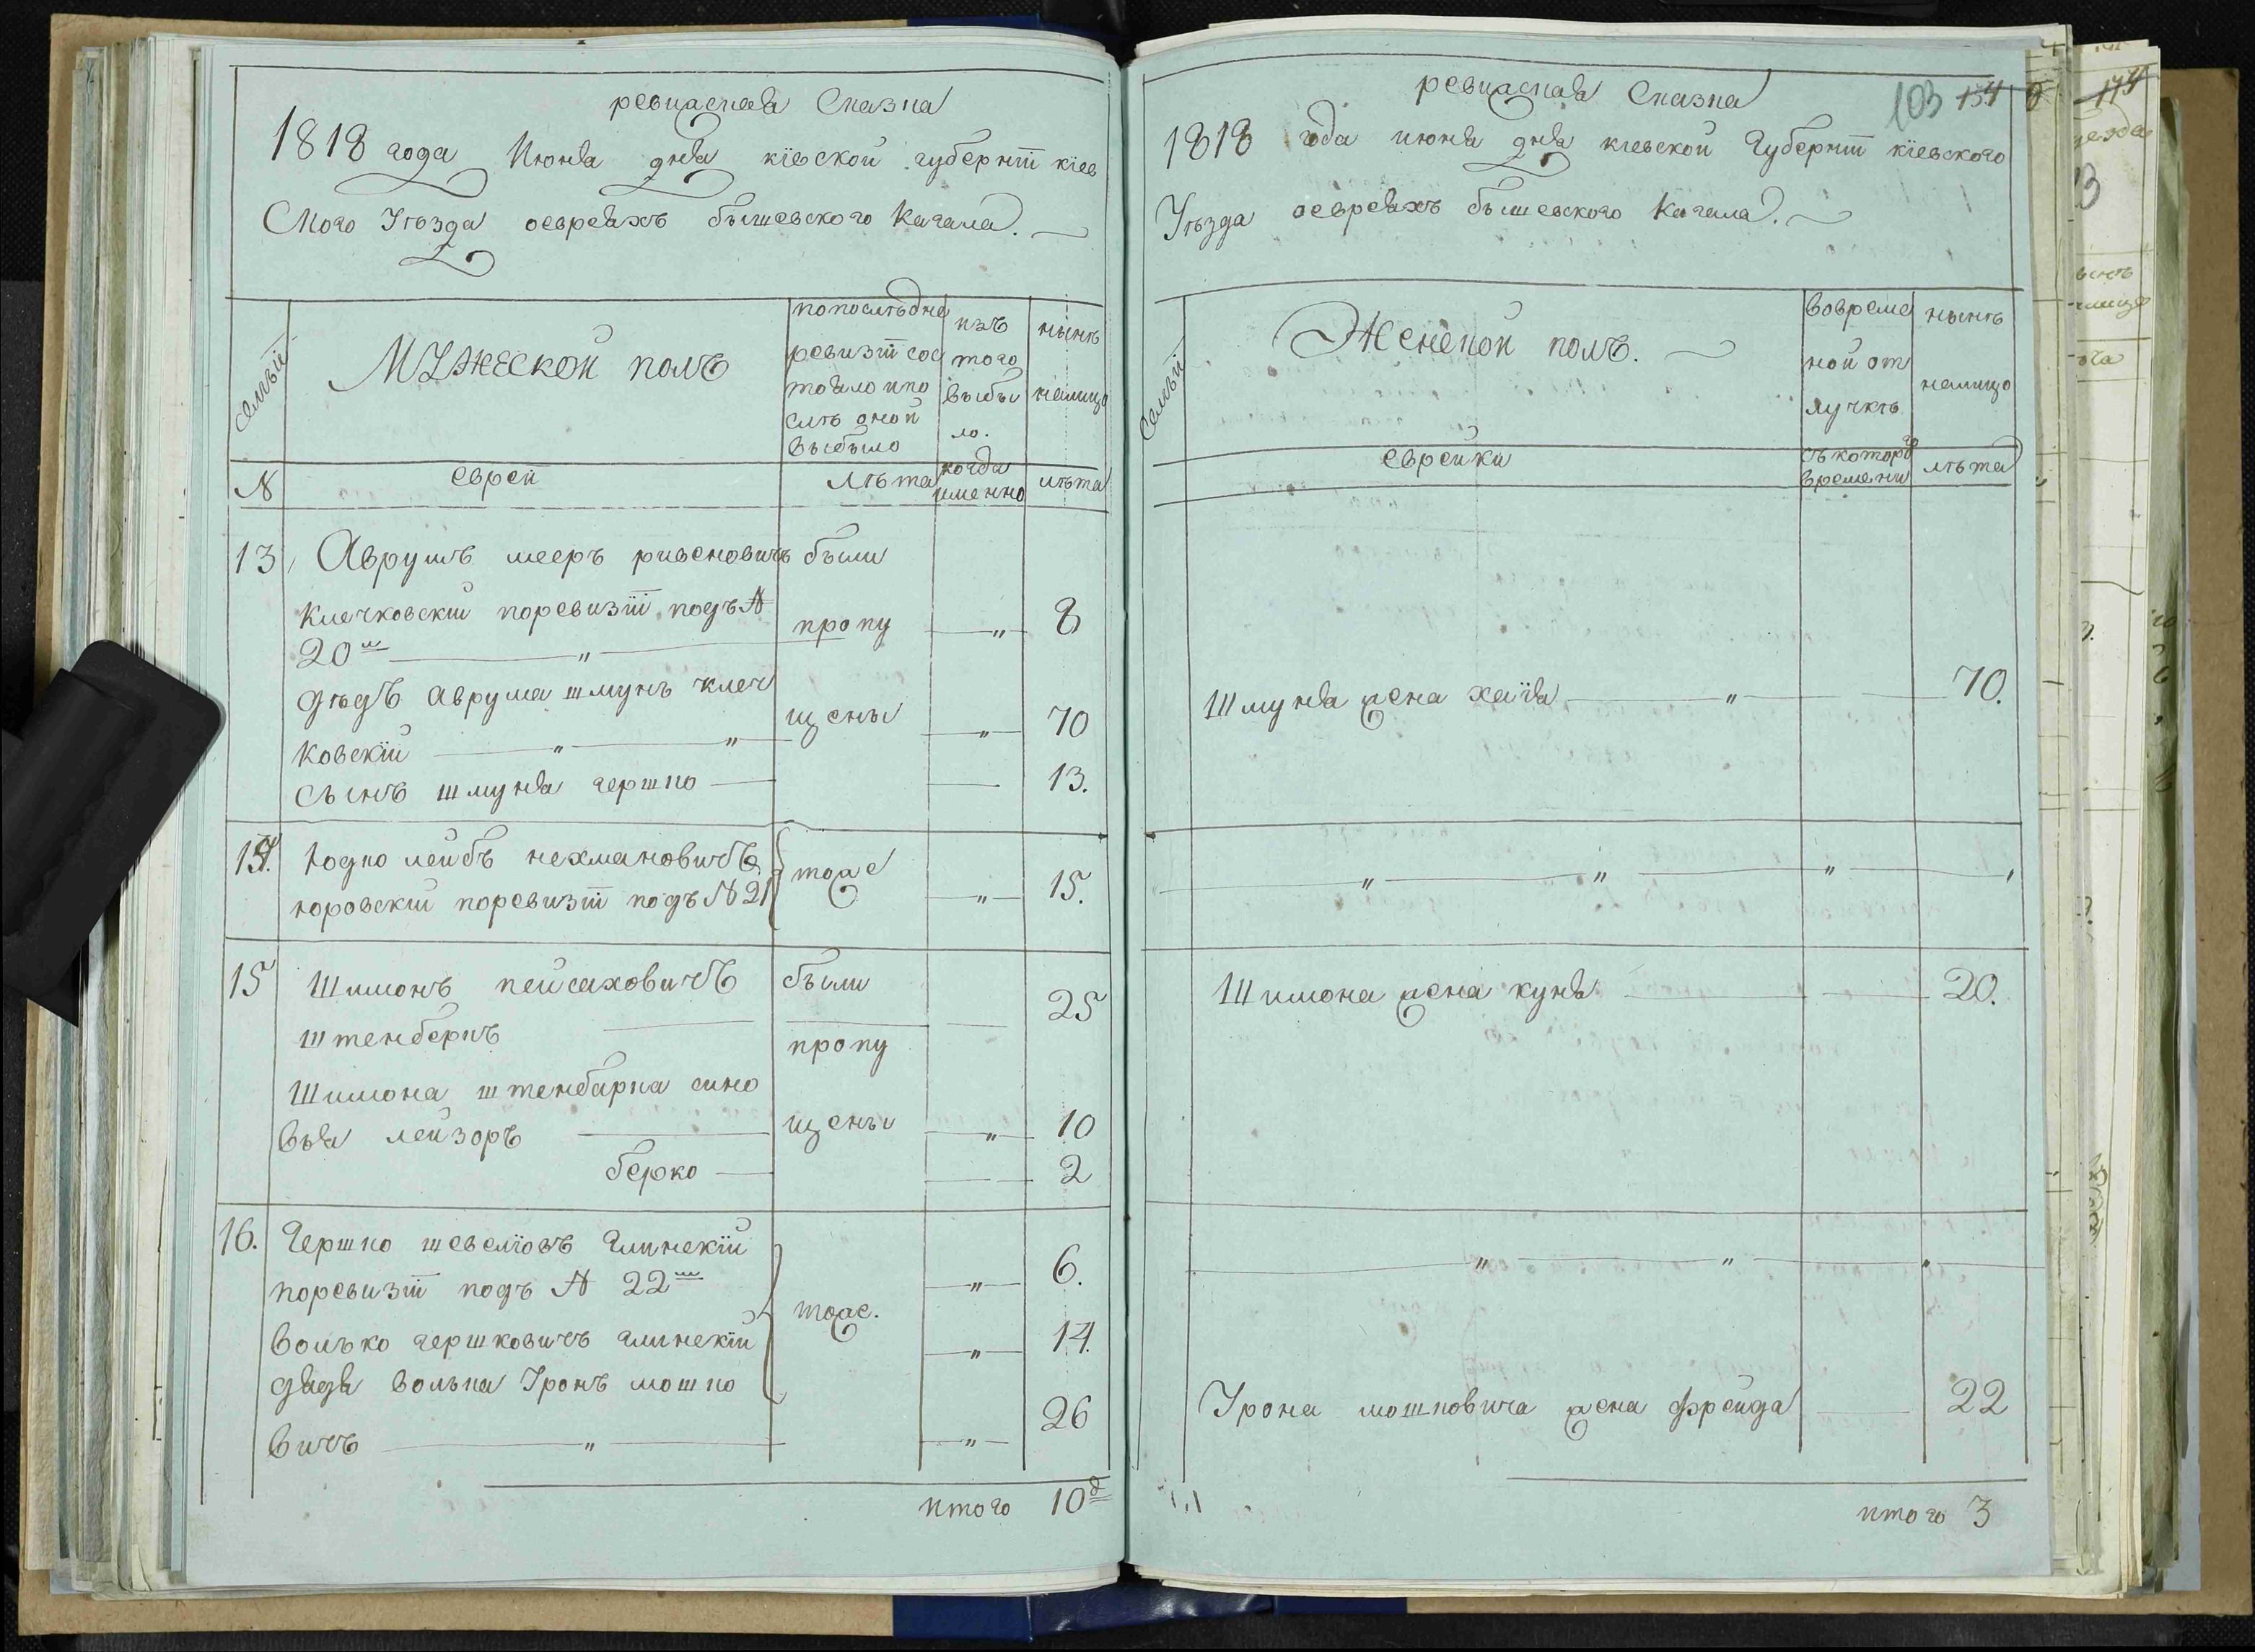 ревизская Сказка
1818 года Июня дня кіевской губерніи кіев
ского Уѣзда оевреяхъ бышевского Кагала.
семьи
МУЖЕСКОЙ полъ
попослѣдне
ревизіи сос
тояло ипо
слѣ оной
выбыло
изъ
того
выбы
ло.
нынѣ
налицо
№
еврей
лѣта
когда
именно
лѣта
13, Аврумъ мееръ ривеновичъ были
Клечковскій поревизіи подъ №
20м " пропу " 8
дѣдъ Аврума шмунъ клеч
ковскій " " щены " 70
Сынъ шмуня гершко 13.
14. Юдко лейбъ нехмановичъ
юровскій поревизіи подъ № 21 тоже " 15.
15 Шимонъ пейсаховичъ были
штенберкъ 25
пропу
Шимона штенбарка сино
вья лейзоръ щены " 10
берко 2
16. Гершко шевеліовъ глинскій
поревизіи подъ № 22м " 6.
Волько гершковичъ глинскій тоже. " 14.
дядя волька Уронъ мошко
вичъ " " 26
итого 10
ревизская Сказка
103 154
1818 года июня дня кіевской Губерніи кіевского
Уѣзда оевреяхъ бышевского Кагала.
Семьи
Женской полъ.
вовреме
ной от
лучкѣ
нынѣ
налицо
еврейки
съкотораго
времени
лѣта
Шмуня жена хаія " 70.
" " " "
Шимона жена куня 20.
" " "
Урона мошковича жена фрейда 22
итого 3